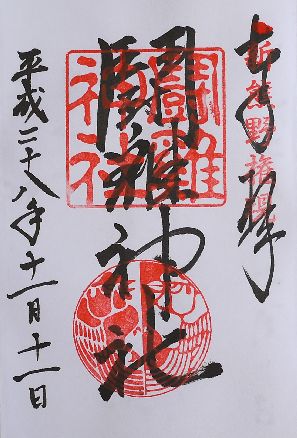 奉拝
新熊野権現
闘雞神社
闘雞神社
平成二十八年十一月十一日